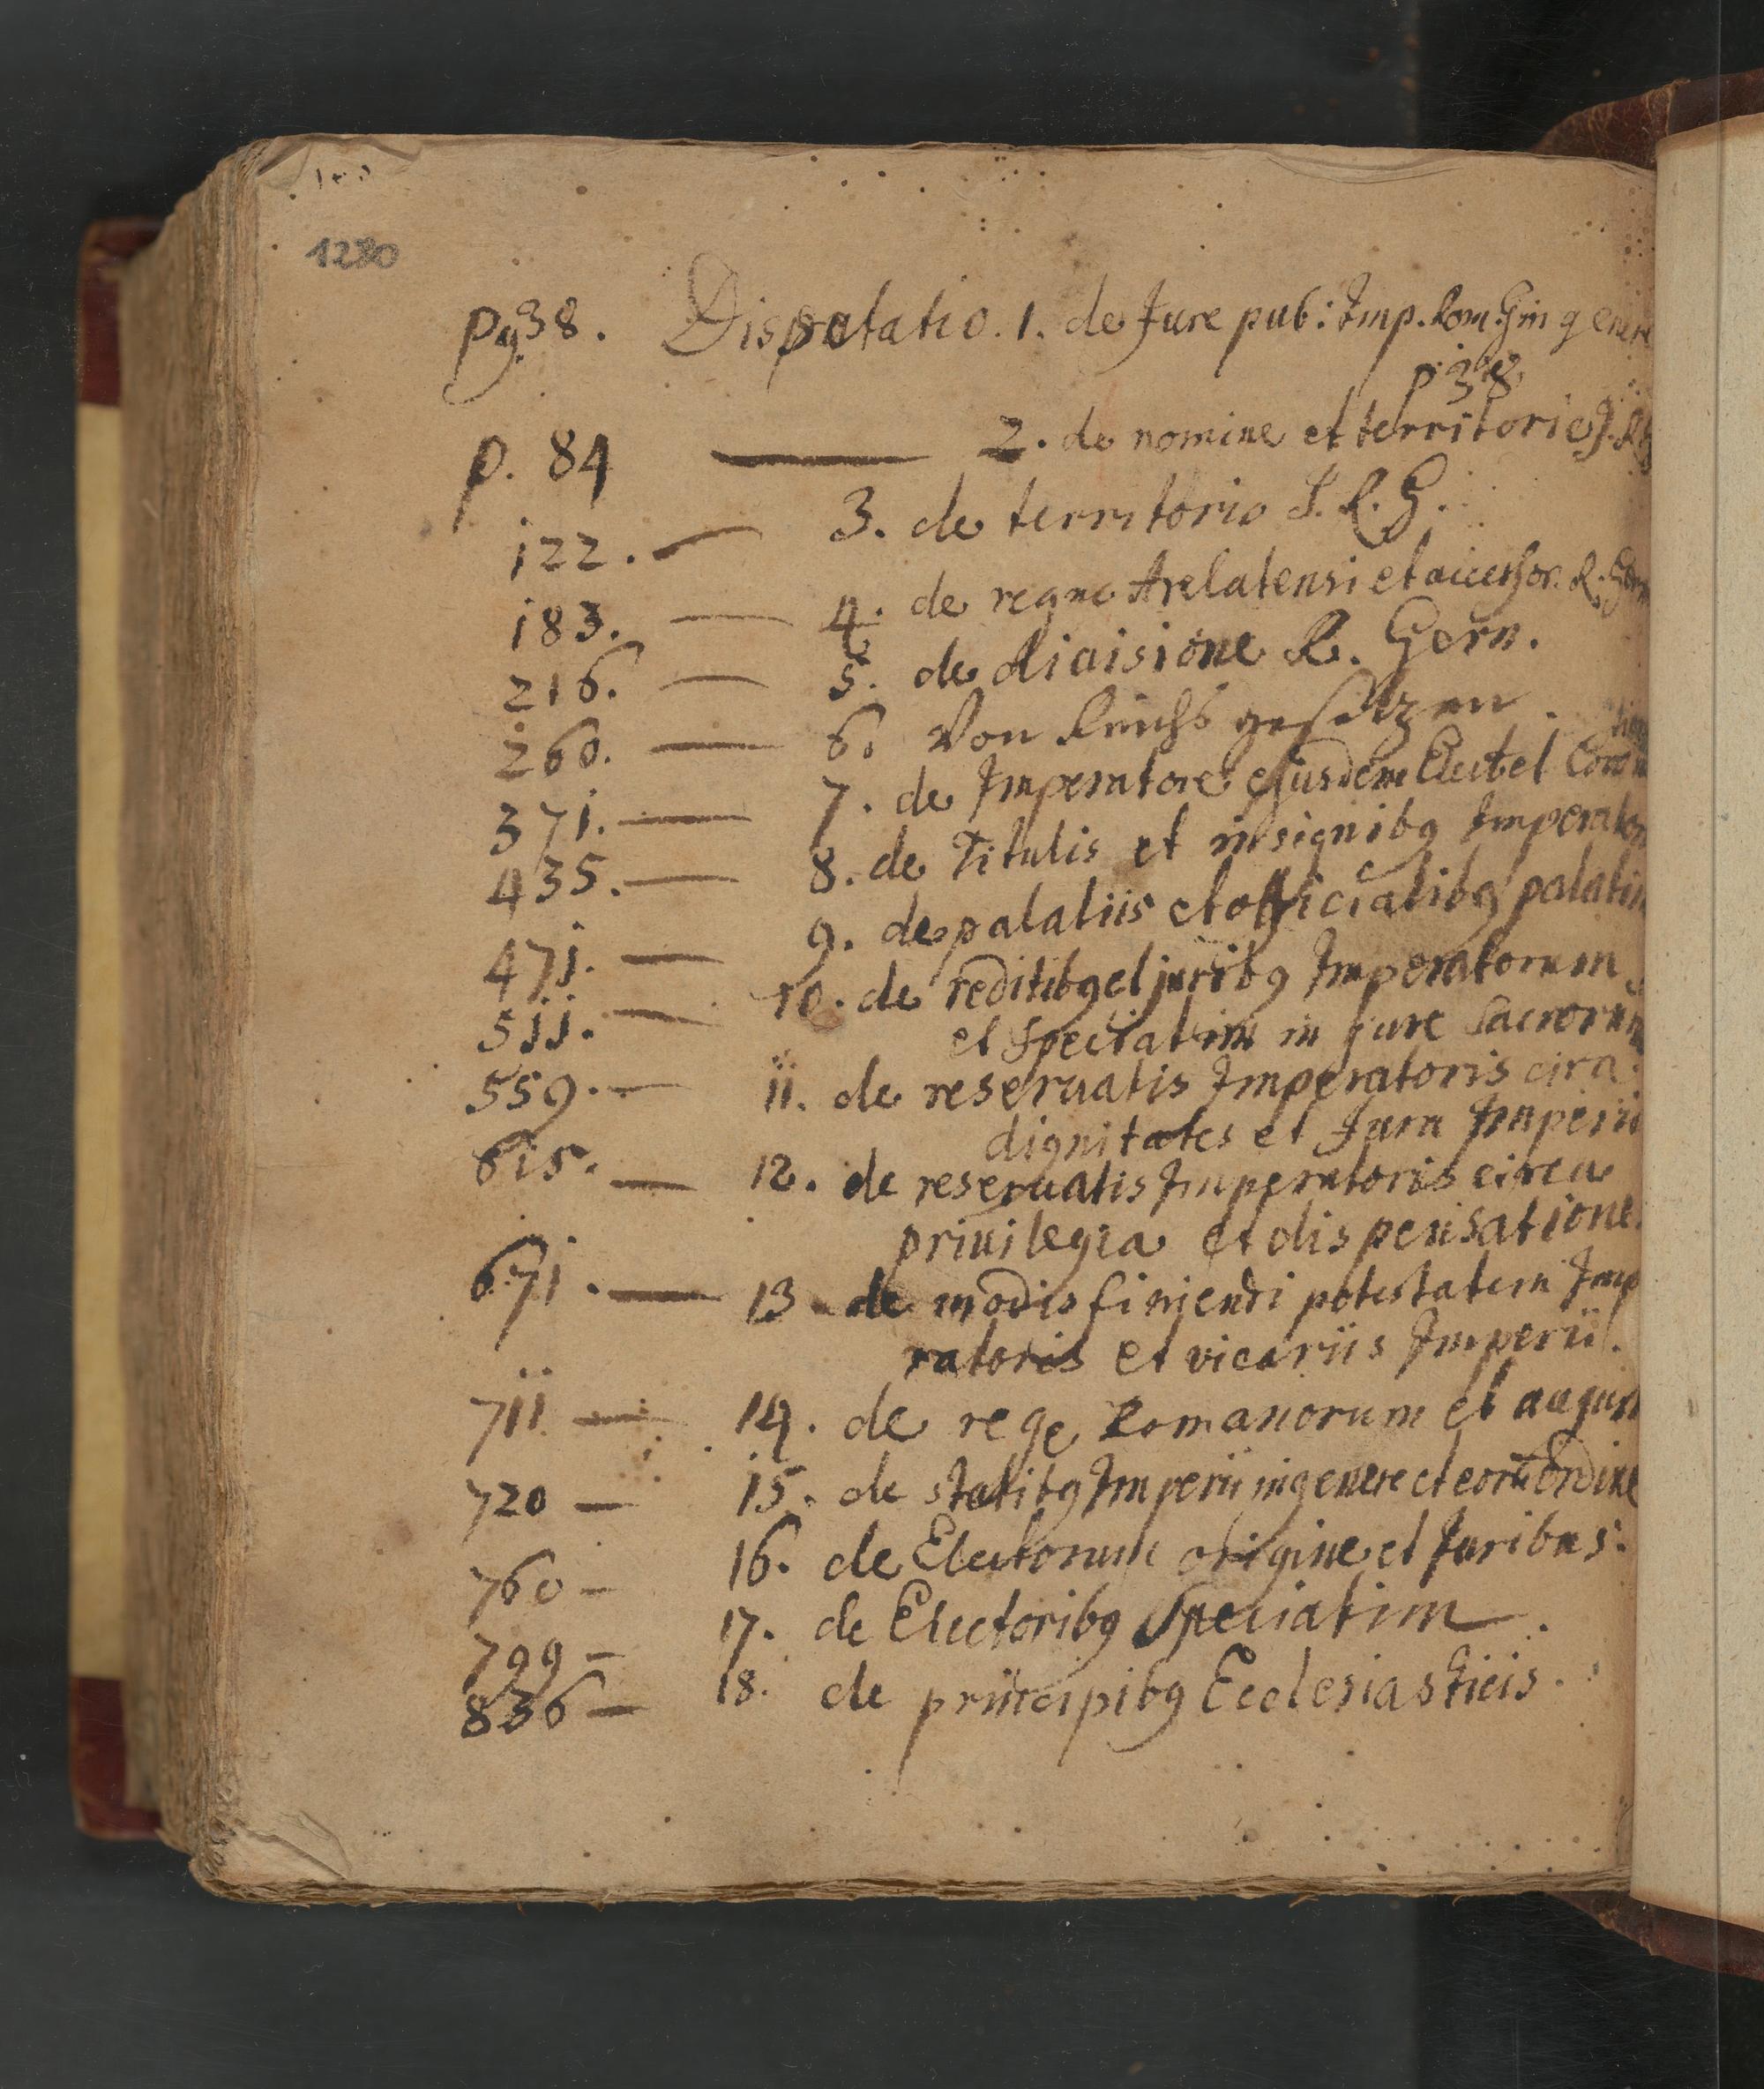 1280
pag 38. Disputatio. 1. de Jure pub: Imp. Rom. G in genere
p 38
p. 84 — 2. de nomine et territorio J. R G
122. — 3. de territorio J. R. G.
183. — 4. de regno Arelatensi et accessor. R. Germ
216. — 5. de diuisione R. Germ.
260. — 6. Von Reichs gesetzen.
371. — 7. de Imperatore ejusdem Elect et Corona
tione
435. — 8. de Titulis et insignibꝯ Imperator
471. — 9. de palatiis et officialibꝯ palatin
511. — 10. de reditibꝯ et juribꝯ Imperatorum
et speciatim in jure Sacrorum
559. — 11. de reseruatis Imperatoris circa
dignitates et Jura Imperii
615. — 12. de reseruatis Imperatoris circa
priuilegia et dispensatione
671. — 13. de modis finiendi potestatem Imp
ratoris et vicariis Imperii.
711 — 14. de rege Romanorum et august
720 — 15. de statibꝯ Imperii in genere et eorū ordine
760 — 16. de Electorum origine et Juribus.
799 — 17. de Electoribꝯ Speciatim.
836 — 18. de principibꝯ Ecclesiasticis.